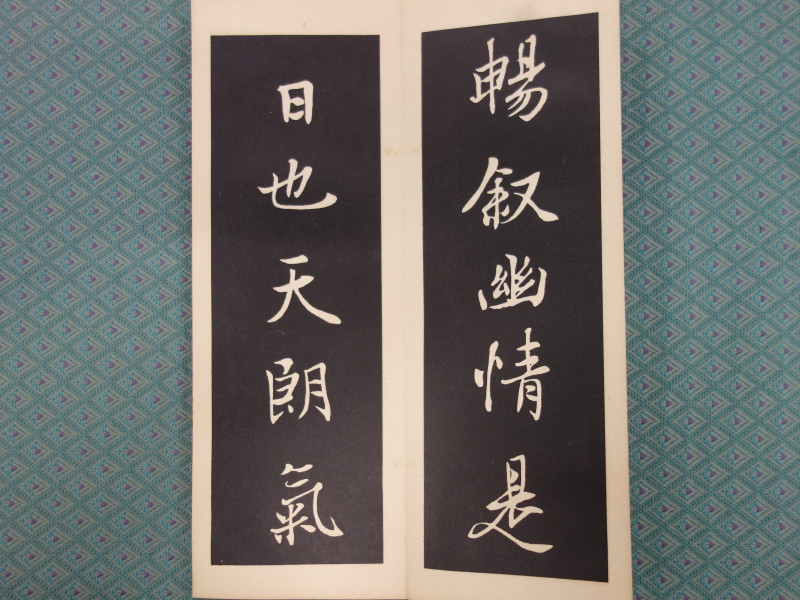 暢叙幽情是
日也天朗氣